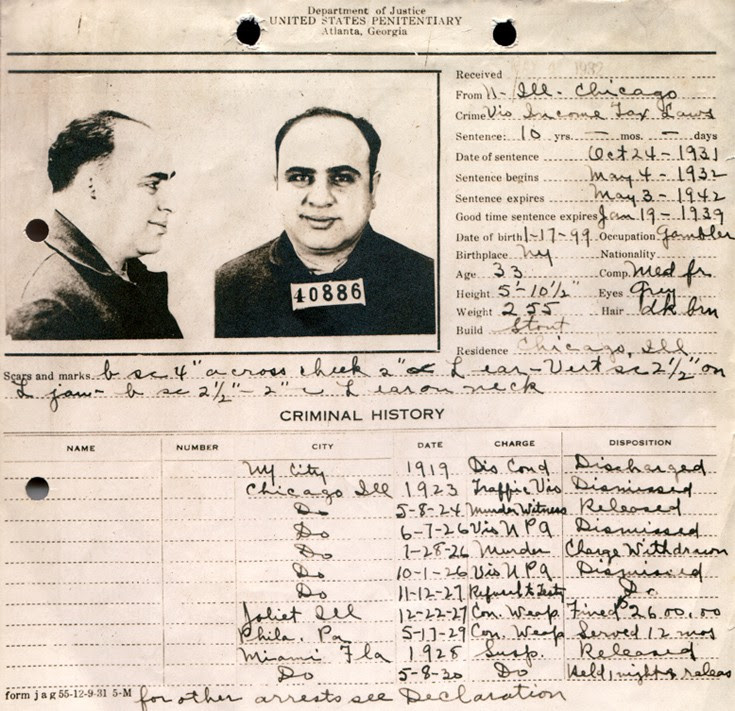 Department of Justice
UNITED STATES PENITENTIARY
Atlanta, Georgia
Received 1932
From N- Ill- Chicago
Crime Vio Income Tax Laws
Sentence: 10 yrs. — mos. — days
Date of sentence Oct 24 - 1931
Sentence begins May 4 - 1932
Sentence expires May 3 - 1942
Good time sentence expires Jan 19 - 1939
Date of birth 1-17-99 Occupation Gambler
Birthplace NY Nationality
Age 33 Comp. Med fr
Height 5'-10½" Eyes Grey
Weight 255 Hair dk brn
Build Stout
Residence Chicago, Ill
40886
Scars and marks b sc 4" across cheek 2" L ear - Vert sc 2½" on
L jaw - b sc 2½" - 2" L ear on neck
CRIMINAL HISTORY
NAME NUMBER CITY DATE CHARGE DISPOSITION
NY City 1919 Dis. Cond Discharged
Chicago Ill 1923 Traffic Vio Dismissed
Do 5-8-24 Murder Witness Released
Do 6-7-26 Vio N P A Dismissed
Do 7-28-26 Murder Charge Withdrawn
Do 10-1-26 Vio N P A Dismissed
Do 11-12-27 Refused to Testy Do.
Joliet Ill 12-22-27 Con. Weap Fined $2600.00
Phila. Pa 5-17-29 Con. Weap Served 12 mos
Miami Fla 1928 Susp. Released
Do 5-8-30 Do Held, night & releas
form j a g 55-12-9-31 5-M for other arrests see Declaration